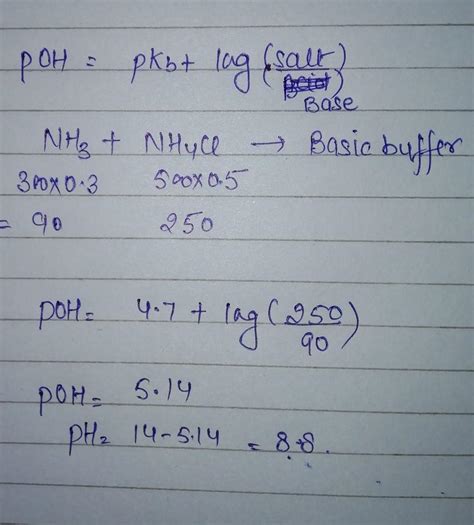 pOH = pKb + log (salt)
Base
NH3 + NH4Cl → Basic buffer
300x0.3 500x0.5
= 90 250
pOH = 4.7 + log (250/90)
pOH = 5.14
pH = 14-5.14 = 8.8.